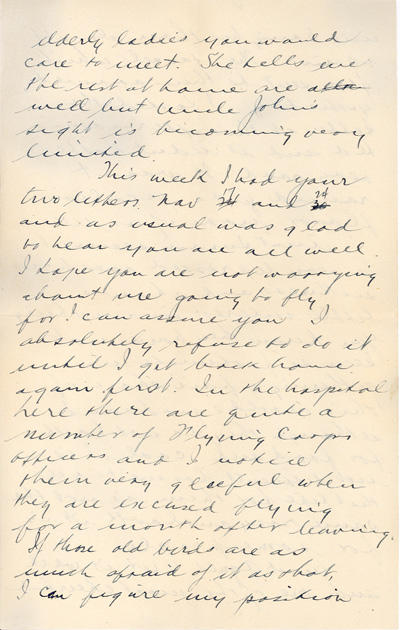 elderly ladies you would
care to meet. She tells me
the rest at home are
well but Uncle John's
sight is becoming very
limited.
This week I had your
two letters Nov 17 and 24
and as usual was glad
to hear you are all well
I hope you are not worrying
about me going to fly
for I can assure you I
absolutely refuse to do it
until I get back home
again first. In the hospital
here there are quite a
number of Flying Corps
officers and I notice
them very gleeful when
they are excused flying
for a month after leaving.
If those old birds are as
much afraid of it as that,
I can figure my position